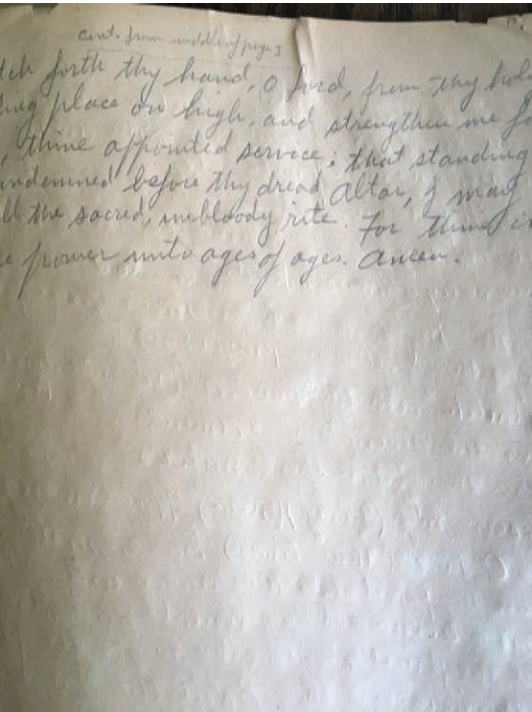 cont. from middle of page 3
tch forth thy hand, O Lord, from thy hol
ling place on high, and strengthen me fo
, thine appointed service; that standing
ndemned before thy dread Altar, I may
ll the sacred, unbloody rite. For thine i
e power unto ages of ages. Amen.